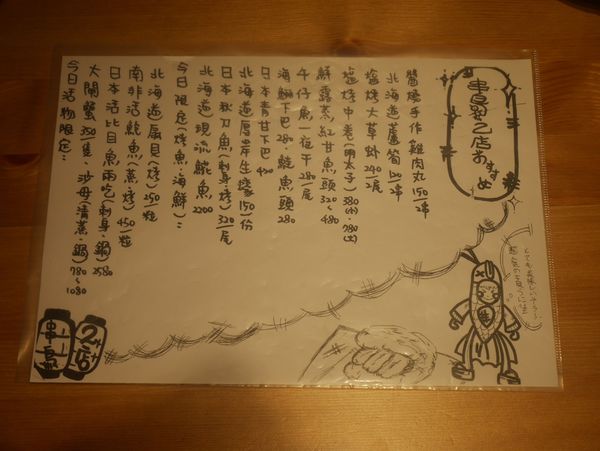 串鳥2店おすすめ
醬燒手作雞肉丸 150/2串
北海道蘆筍 120/串
塩烤大草蝦 240/2尾
塩烤中卷(明太子) 380(小)·780(大)
鮮露蒸紅甘魚頭 320~480
午仔魚一夜干 280/尾
海鯽下巴 280·鮭魚頭 280
日本青甘下巴 420
北海道厚岸生蠔 150/份
日本秋刀魚(刺身·烤) 320/尾
北海道現流鯱魚 2200
今日限定(烤魚·海鮮):
北海道扇貝(烤) 250/粒
南非活鮑魚(蒸·烤) 450/粒
日本活比目魚兩吃(刺身·鍋) 2580
大閘蟹 350/隻·沙母(清蒸·鍋) 780~1080
今日活物限定:
2店
串鳥